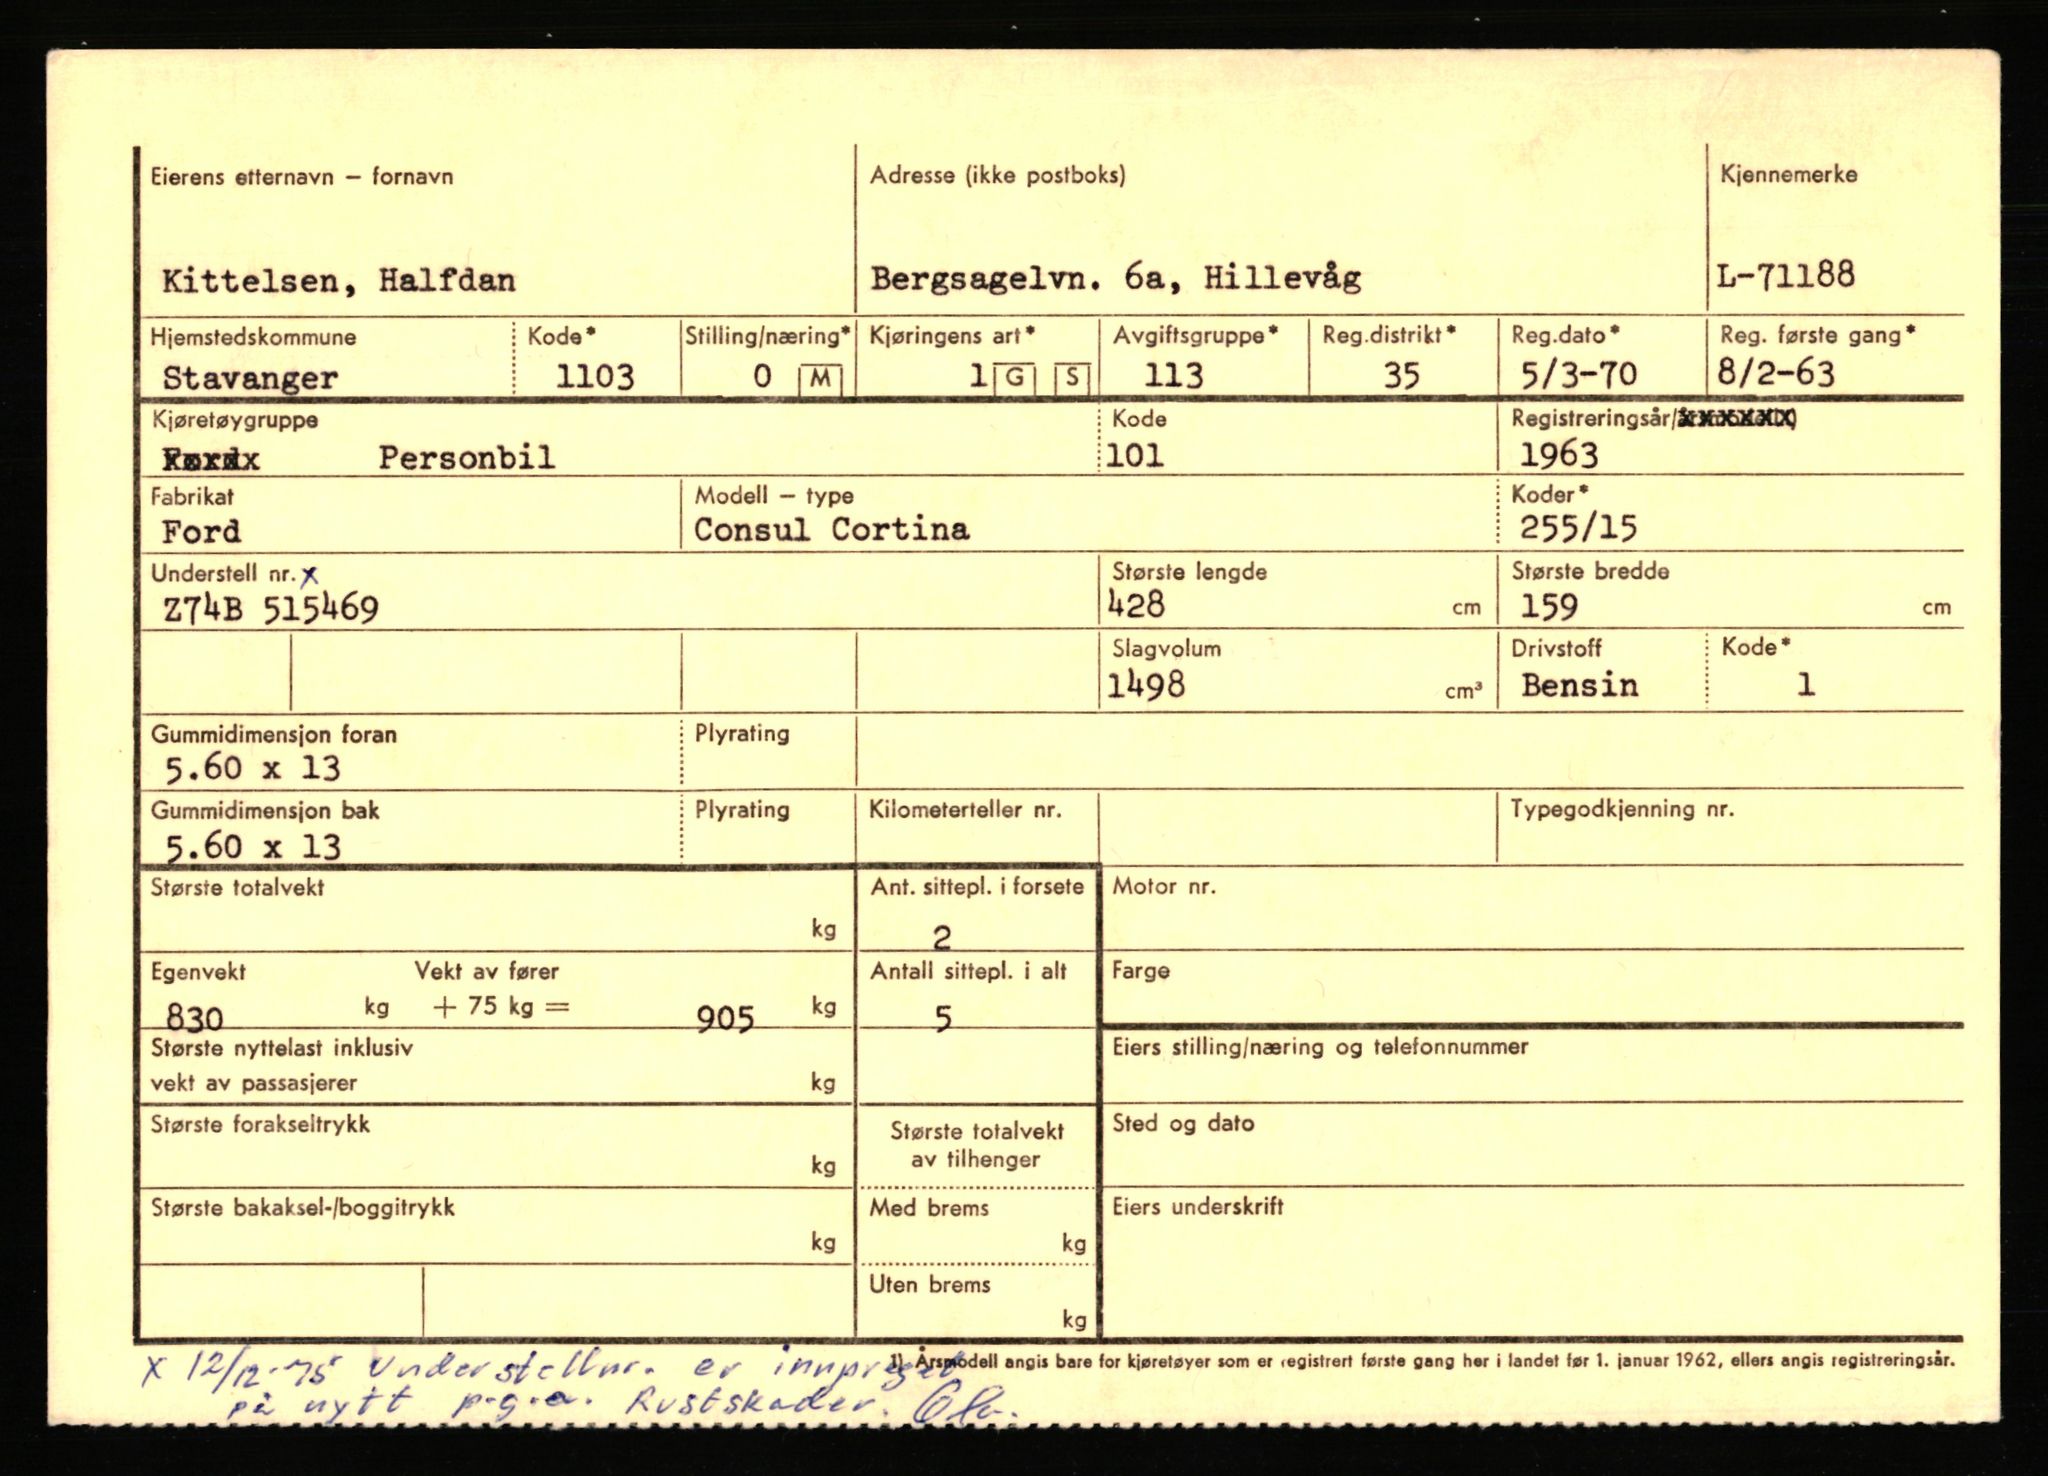 Eierens etternavn – fornavn Adresse (ikke postboks) Kjennemerke
Kittelsen, Halfdan Bergsagelvn. 6a, Hillevåg L-71188
Hjemstedskommune Kode* Stilling/næring* Kjøringens art* Avgiftsgruppe* Reg.distrikt* Reg.dato* Reg. første gang*
Stavanger 1103 0 M 1 G S 113 35 5/3-70 8/2-63
Kjøretøygruppe Kode Registreringsår/
Personbil 101 1963
Fabrikat Modell – type Koder*
Ford Consul Cortina 255/15
Understell nr. x Største lengde Største bredde
Z74B 515469 428 cm 159 cm
Slagvolum Drivstoff Kode*
1498 cm³ Bensin 1
Gummidimensjon foran Plyrating
5.60 x 13
Gummidimensjon bak Plyrating Kilometerteller nr. Typegodkjenning nr.
5.60 x 13
Største totalvekt Ant. sittepl. i forsete Motor nr.
kg 2
Egenvekt Vekt av fører Antall sittepl. i alt Farge
830 kg + 75 kg = 905 kg 5
Største nyttelast inklusiv Eiers stilling/næring og telefonnummer
vekt av passasjerer kg
Største forakseltrykk Største totalvekt Sted og dato
kg av tilhenger
Største bakaksel-/boggitrykk Med brems Eiers underskrift
kg kg
Uten brems
kg
1) Årsmodell angis bare for kjøretøyer som er registrert første gang her i landet før 1. januar 1962, ellers angis registreringsår.
x 12/12-75 Understellnr. er innpreget
på nytt p.g.a. Rustskader.